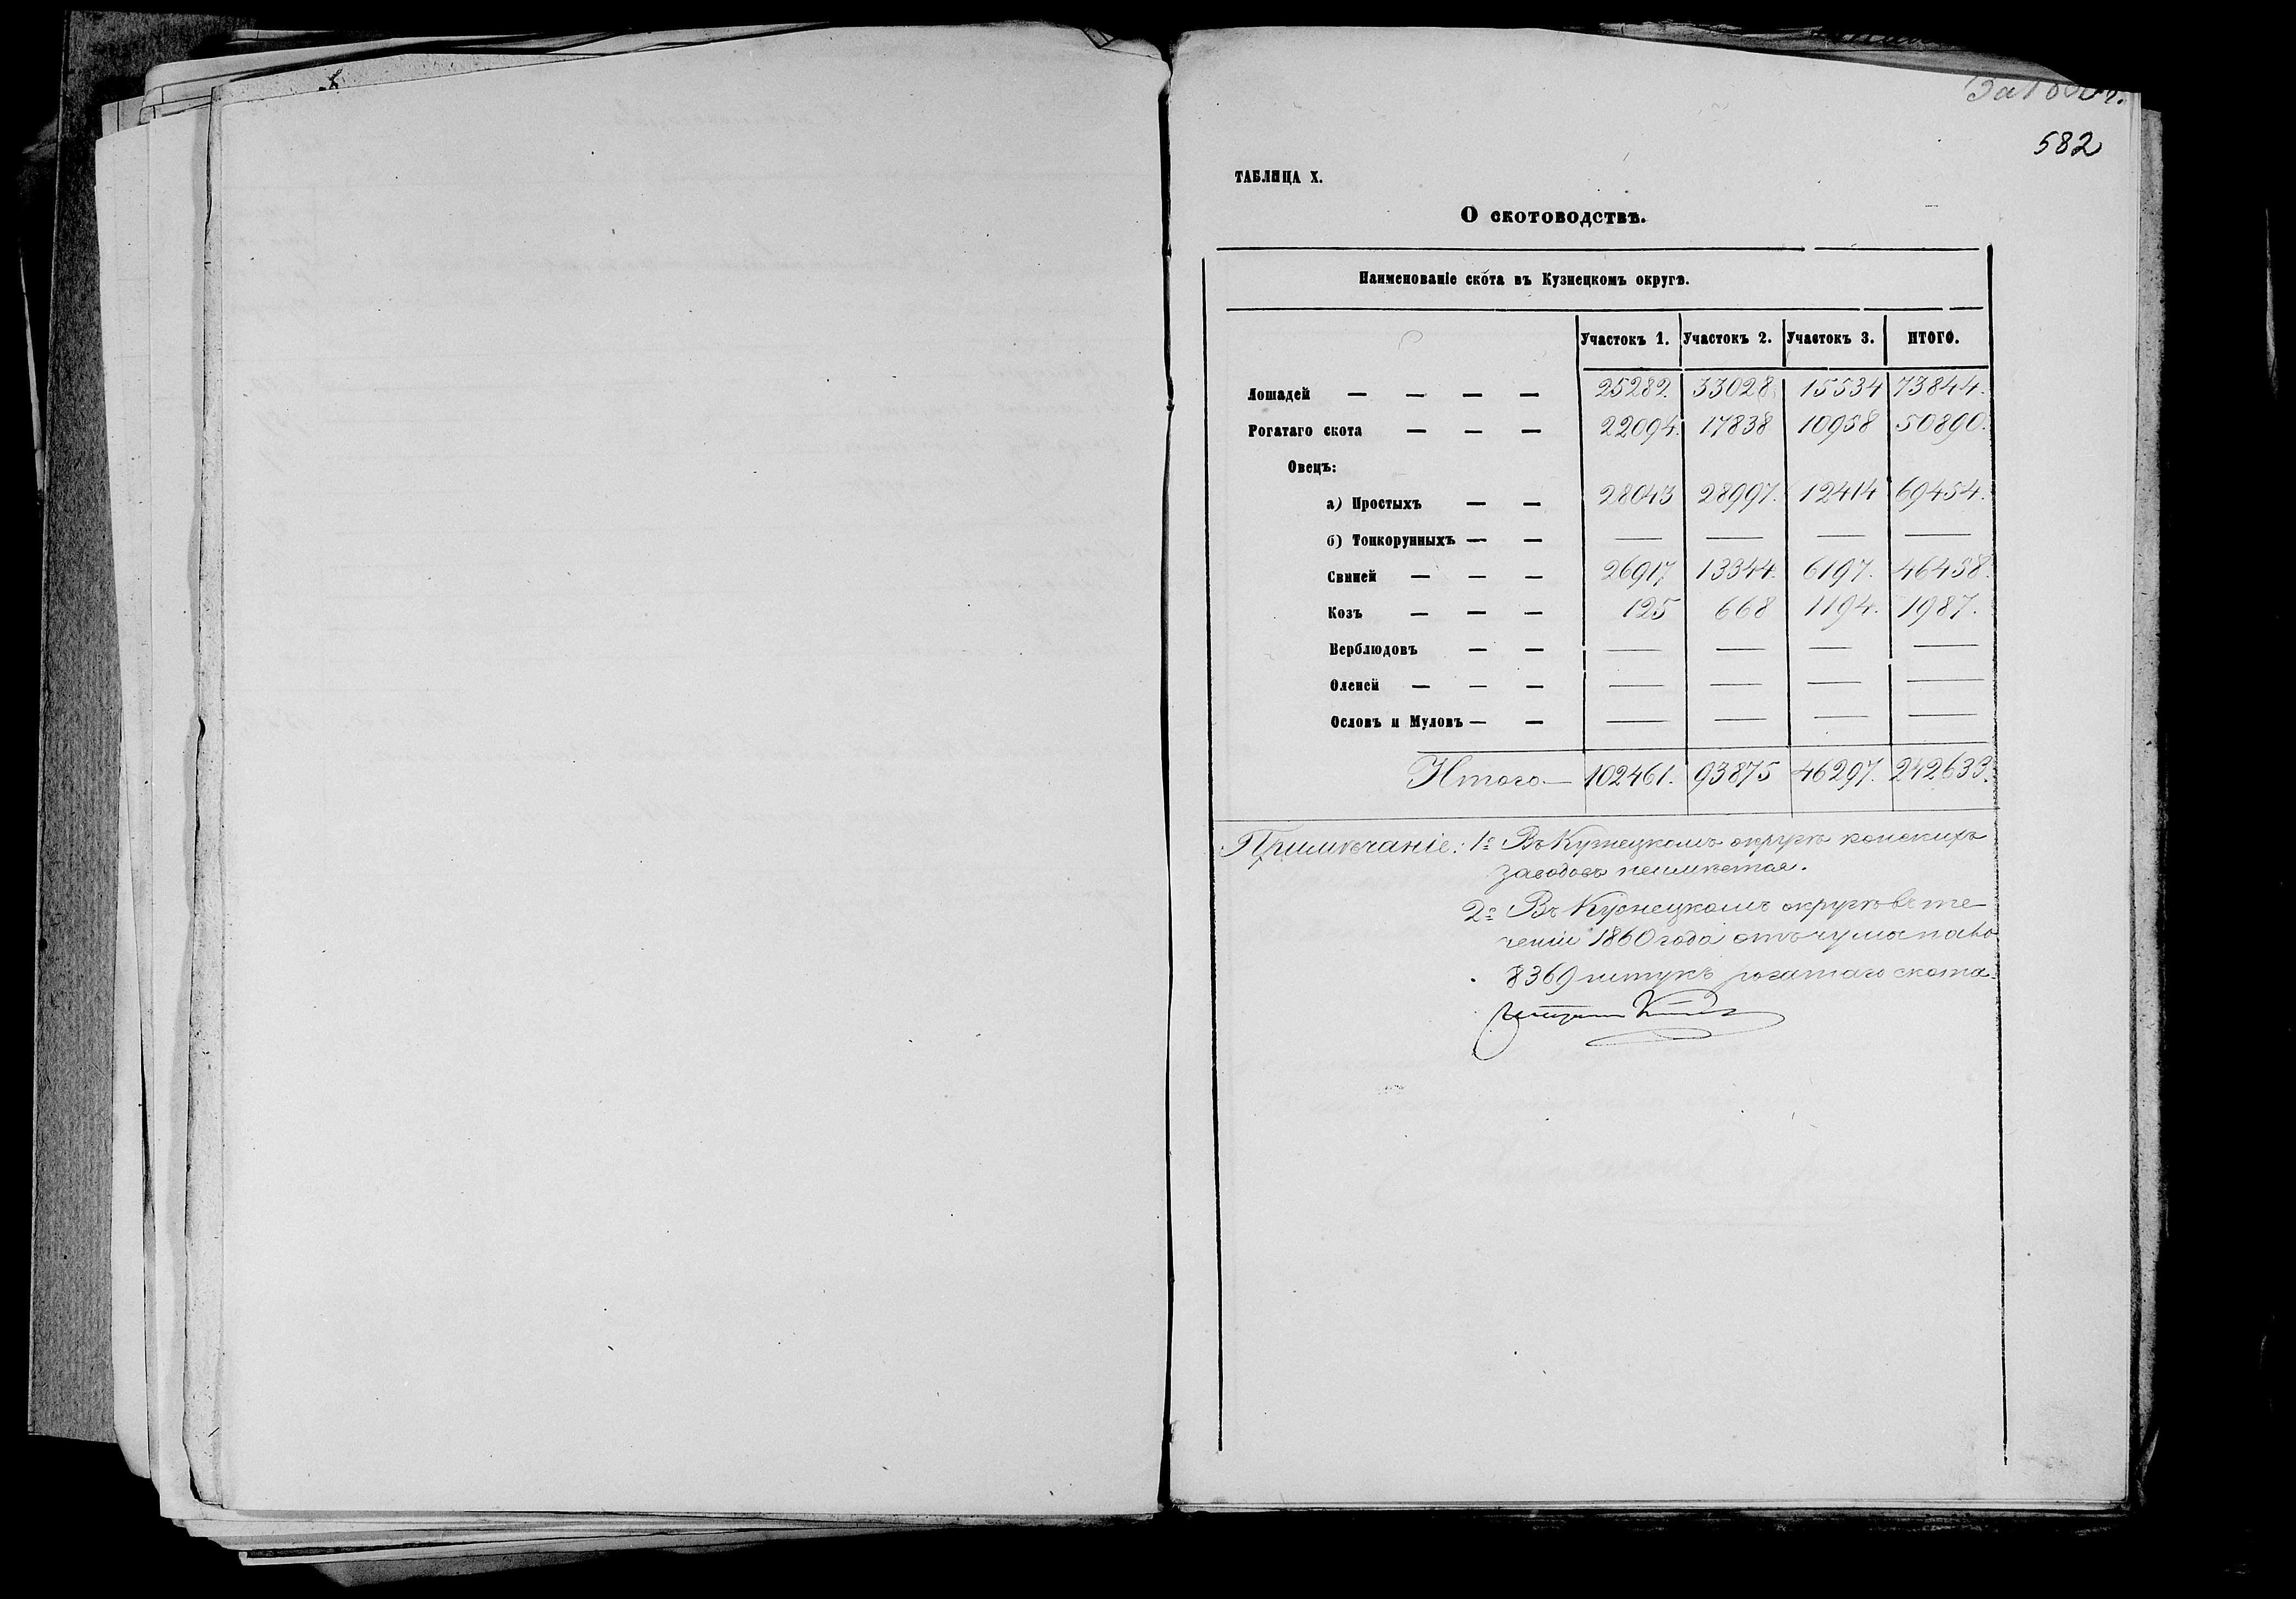 582
ТАБЛИЦА X.
О скотоводствѣ.
Наименованіе скота въ Кузнецкомъ округѣ.
Участокъ 1. Участокъ 2. Участокъ 3. ИТОГО.
Лошадей — — — — 25282. 33028. 15534 73844.
Рогатаго скота — — — 22094. 17838 10958 50890.
Овецъ:
а) Простыхъ — — 28043 28997. 12414 69454.
б) Тонкорунныхъ — — — — — —
Свиней — — — 26917 13344. 6197. 46458.
Козъ — — — 125 668 1194. 1987.
Верблюдовъ — — — — — —
Оленей — — — — — — —
Ословъ и Муловъ — — — — — —
Итого — 102461. 93875 46297. 242633.
Примѣчаніе: 1е Въ Кузнецкомъ округѣ конскихъ
заводовъ неимѣется.
2е Въ Кузнецкомъ округѣ въ те-
ченіи 1860 года отъ чумы пало
8369 штукъ рогатаго скота.